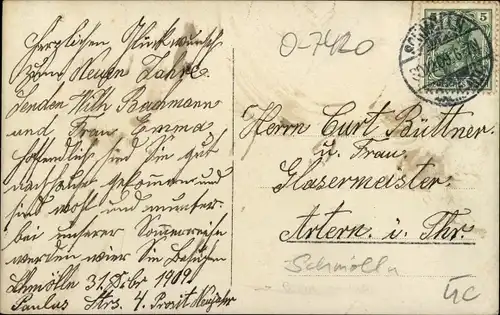 Herzlichen Glückwunsch
zum Neuen Jahre.
Senden Wilh Bachmann
und Frau Erma
hoffentlich sind Sie gut
nachhause gekommen und
sind wohl und munter.
bei unserer Sommerreise
werden wier Sie besuchen
Schmölln 31. Dzbr 1909
Paulus Strs. 4. Prosit Neujahr
O-7420
5
Herrn Curt Büttner
u. Frau
Glasermeister
Artern. i. Thr.
Schmölln